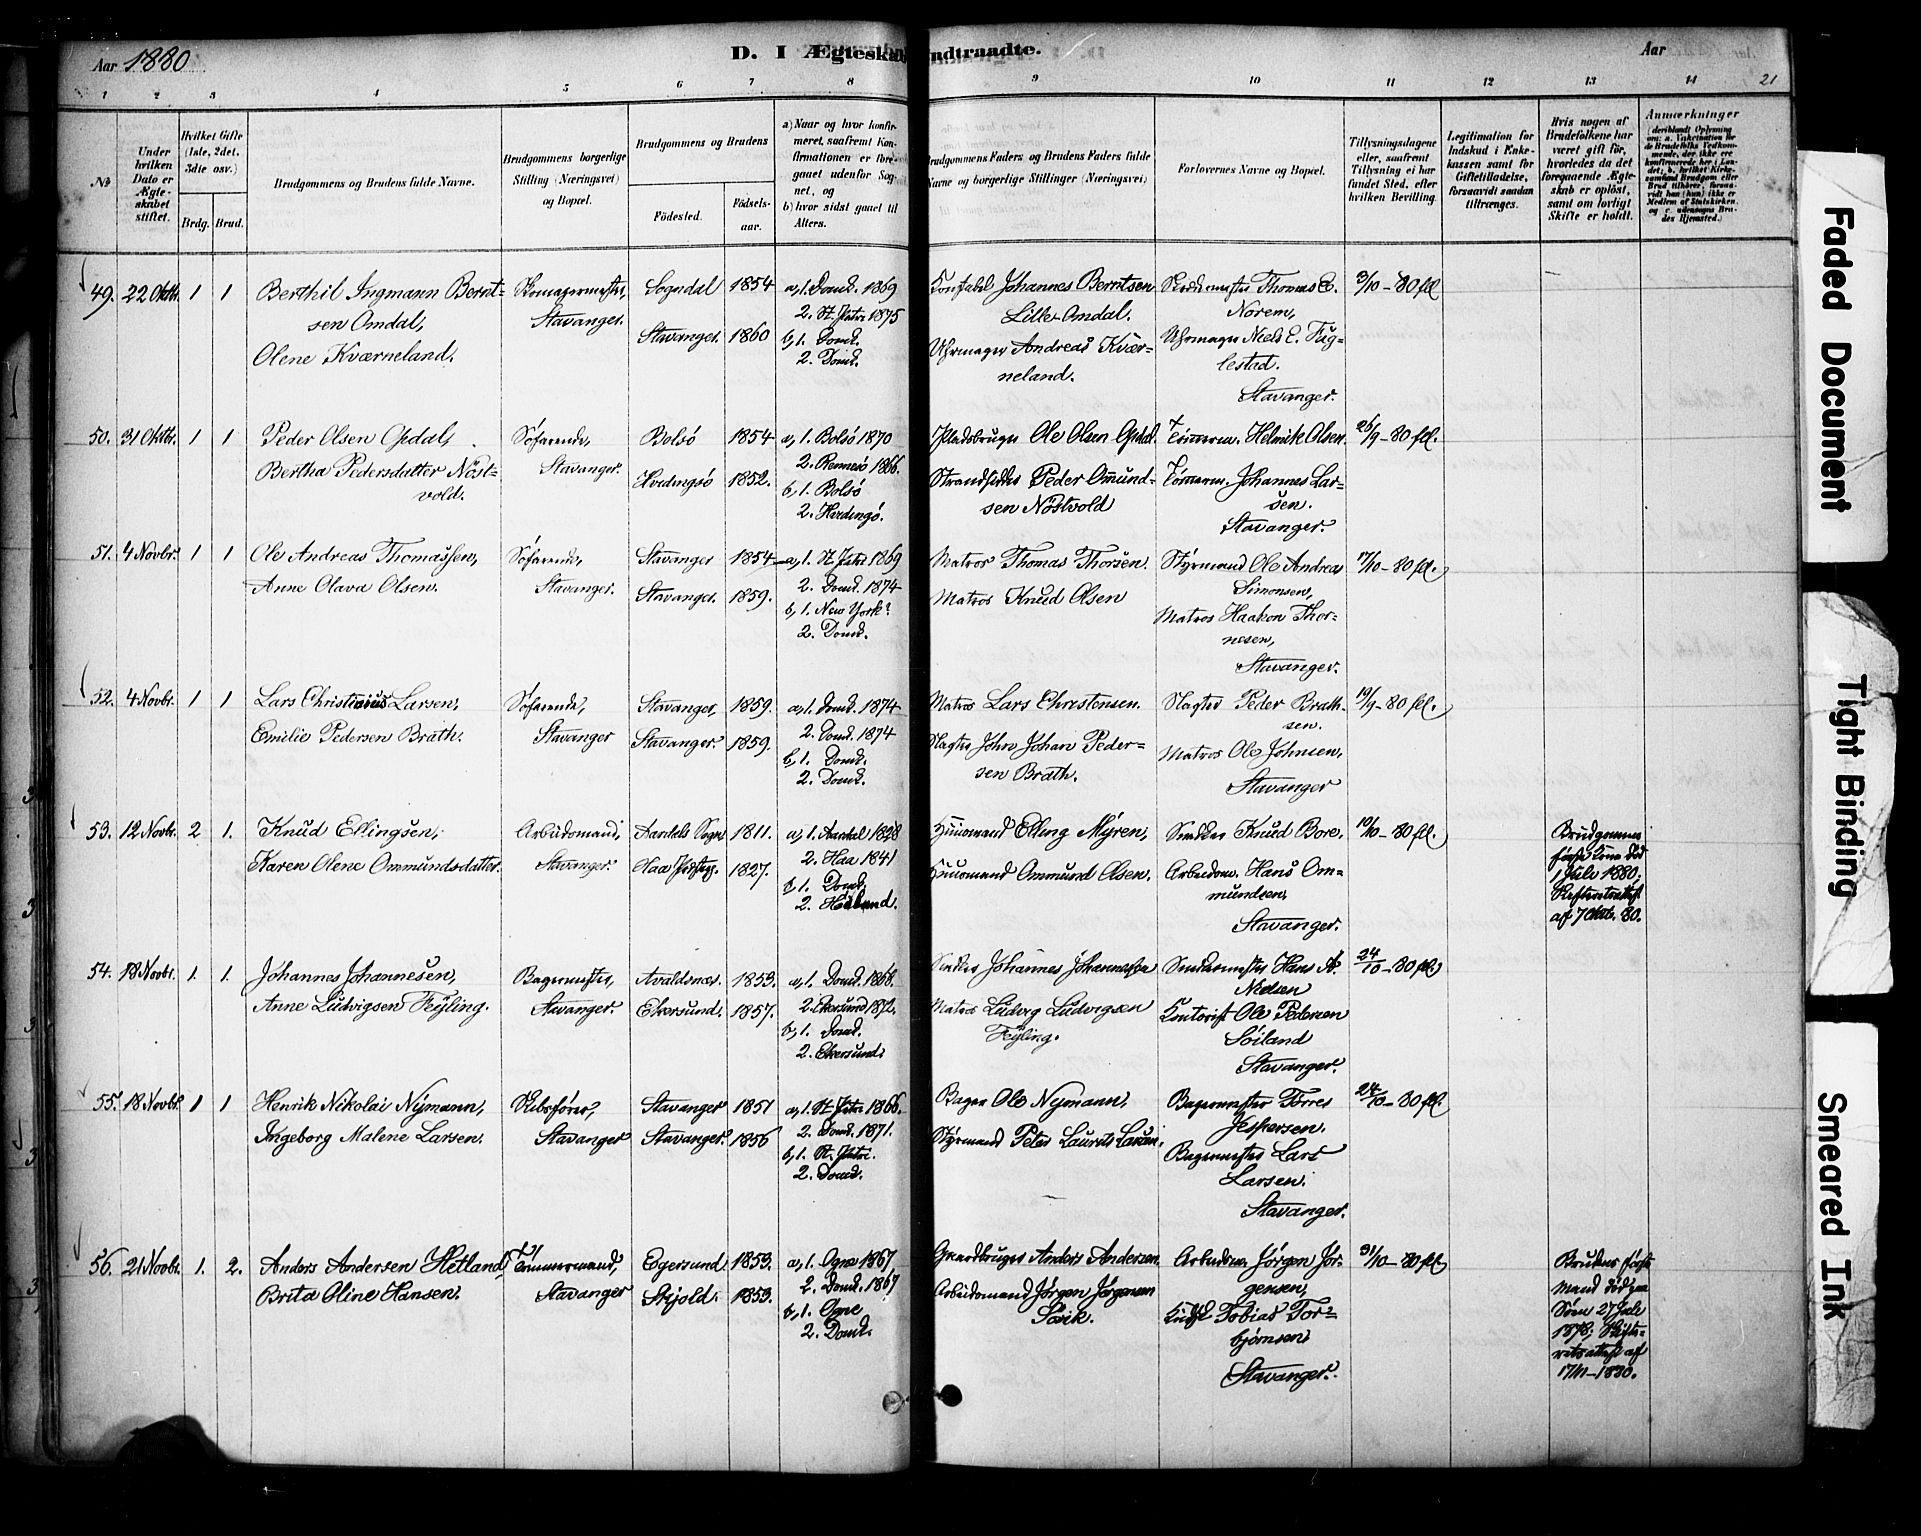 Aar 1880
D. I Ægteskab Indtraadte.
Aar
1 2 3 4 5 6 7 8 9 10 11 12 13 14 21
No
Under hvilken Dato er Ægteskabet stiftet.
Hvilket Gifte (1ste, 2det, 3die osv.)
Brdg. Brud.
Brudgommens og Brudens fulde Navne.
Brudgommens borgerlige Stilling (Næringsvei) og Bopæl.
Brudgommens og Brudens
Fødested. Fødsels-aar.
a) Naar og hvor konfirmeret, saafremt Konfirmationen er foregaaet udenfor Sognet, og
b) hvor sidst gaaet til Alters.
Brudgommens Faders og Brudens Faders fulde Navne og borgerlige Stillinger (Næringsvei)
Forlovernes Navne og Bopæl.
Tillysningsdagene eller, saafremt Tillysning ei har fundet Sted, efter hvilken Bevilling.
Legitimation for Indskud i Enkekassen samt for Giftetilladelse, forsaavidt saadan tiltrænges.
Hvis nogen af Brudefolkene har været gift før, hvorledes da det foregaaende Ægteskab er opløst, samt om lovligt Skifte er holdt.
Anmærkninger
49. 22 Oktbr. 1 1
Berthil Ingmann Bernt-
sen Omdal,
Olene Kværneland.
Skomagermester,
Stavanger.
Sogndal 1854
Stavanger. 1860
a, 1. Domk. 1869
2. St. Petri 1875
b, 1. Domk.
2. Domk.
Konstabel Johannes Berntsen
Lille-Omdal.
Uhrmager Andreas Kvær-
neland.
Skrædermester Thomas E.
Norem,
Uhrmager Niels E. Fug-
lestad.
Stavanger.
3/10 - 80 fl
50. 31 Oktbr. 1 1
Peder Olsen Opdal,
Bertha Pedersdatter Nöst-
vold.
Söfarende,
Stavanger.
Bolsö 1854
Hvidingsö 1852.
a, 1. Bolsö 1870
2. Rennesö 1866.
b, 1. Bolsö
2. Hvidingsö.
Pladsbruger Ole Olsen Opdal.
Strandsidder Peder Omund-
sen Nöstvold
Tömmerm. Helmik Olsen.
Tömmerm. Johannes Lar-
sen.
Stavanger.
26/9 - 80 fl.
51. 4 Novbr. 1 1
Ole Andreas Thomassen,
Anne Olava Olsen.
Söfarende,
Stavanger.
Stavanger 1854
Stavanger. 1859.
a, 1. St. Petri 1869
2. Domk. 1874
b, 1. New York?
2. Domk.
Matros Thomas Thorsen.
Matros Knud Olsen
Styrmand Ole Andreas
Simonsen,
Matros Haakon Thor-
nesen,
Stavanger.
17/10 - 80 fl.
52. 4 Novbr. 1 1
Lars Christinius Larsen,
Emilie Pedersen Bråth.
Söfarende,
Stavanger
Stavanger, 1859.
Stavanger. 1859.
a, 1. Domk. 1874
2. Domk. 1874
b, 1. Domk.
2. Domk.
Matros Lars Christensen.
Slagter John Johan Peder-
sen Bråth.
Slagter Peder Brath-
sen.
Matros Ole Johnsen,
Stavanger
19/9 - 80 fl.
53. 12 Novbr. 2 1.
Knud Ellingsen,
Karen Olene Ommundsdatter.
Arbeidsmand,
Stavanger.
Aardals Sogn 1811.
Haa Præstegj. 1827.
a, 1. Aardal 1828
2. Haa 1841
b, 1. Domk.
2. Höiland.
Huusmand Elling Myren,
Huusmand Ommund Olsen.
Snedker Knud Bore,
Arbeidsm. Hans Om-
mundsen,
Stavanger.
10/10 - 80 fl.
Brudgommens
første Kone død
1 Juli 1880;
Skifteretsattest
af 7 Oktb. 80.
54. 18 Novbr. 1. 1.
Johannes Johannesen,
Anne Ludvigsen Feyling.
Bagermester,
Stavanger.
Avaldsnæs. 1853.
Ekersund. 1857.
a, 1. Domk. 1868.
2. Ekersund 1872.
b, 1. Domk.
2. Ekersund.
Snedker Johannes Johannessen
Matros Ludvig Ludvigsen
Feyling.
Snedkermester Hans A.
Nielsen
Kontorist Ole Pedersen
Söiland
Stavanger.
24/10 - 80 fl.
55. 18 Novbr. 1 1
Henrik Nikolai Nymann,
Ingeborg Malene Larsen.
Skibsfører,
Stavanger
Stavanger 1851
Stavanger. 1856
a, 1. St. Petri 1866.
2. Domk. 1871.
b, 1. St. Petri.
2. Domk.
Bager Ole Nymann,
Styrmand Peter Laurits Larsen.
Bagermester Torres
Jespersen.
Bagermester Lars
Larsen.
Stavanger.
24/10 - 80 fl.
56. 21 Novbr. 1. 2.
Anders Andersen Hetland,
Brita Oline Hansen.
Tömmermand,
Stavanger
Egersund 1853.
Skjold. 1853.
a, 1. Ogne 1867,
2. Domk. 1867
b, 1. Ogne
2. Domk.
Gaardbruger Anders Andersen
Arbeidsmand Jörgen Jörgensen
Arbeidsm. Jörgen Jör-
gensen,
Tobias Tor-
björnsen
Stavanger.
31/10 - 80 fl
Brudens første
Mand død paa
Søen 27 Juli
1878; Skifte-
retsattest af
17/11 - 1880.
Faded Document
Tight Binding
Smeared Ink